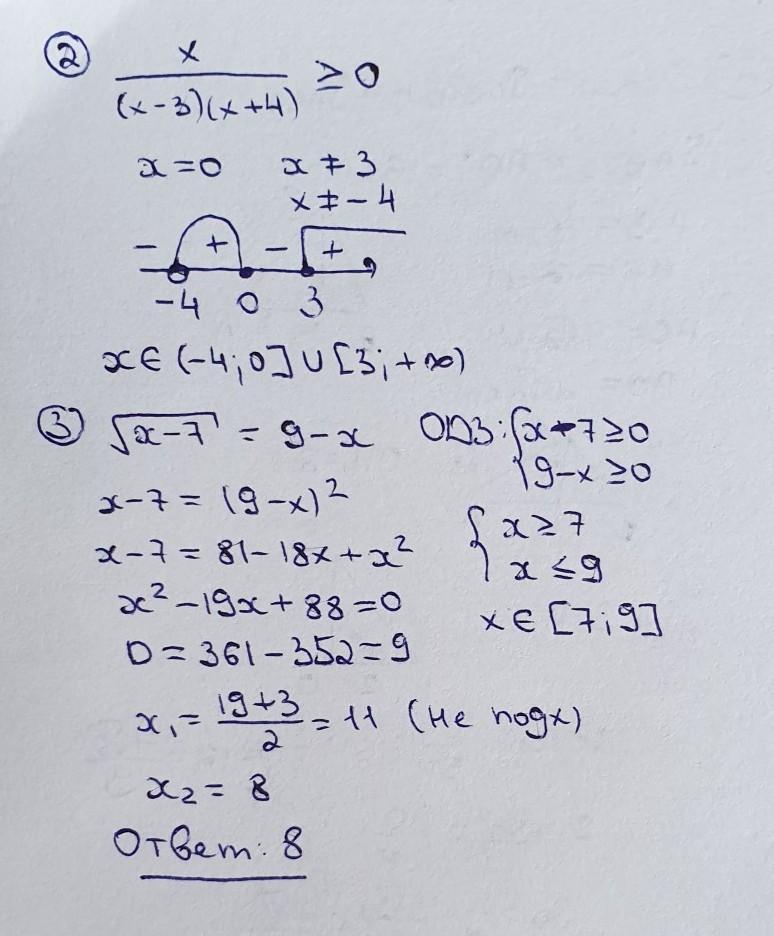 ② x / (x-3)(x+4) ≥ 0
x=0 x≠3
x≠-4
- + - +
-4 0 3
x∈(-4;0]∪[3;+∞)
③ √(x-7) = 9-x ОДЗ: {x-7≥0
9-x≥0
x-7 = (9-x)²
{x≥7
x-7 = 81-18x+x²
x≤9
x²-19x+88=0
x∈[7;9]
D=361-352=9
x₁= (19+3)/2 = 11 (не подх)
x₂= 8
Ответ: 8